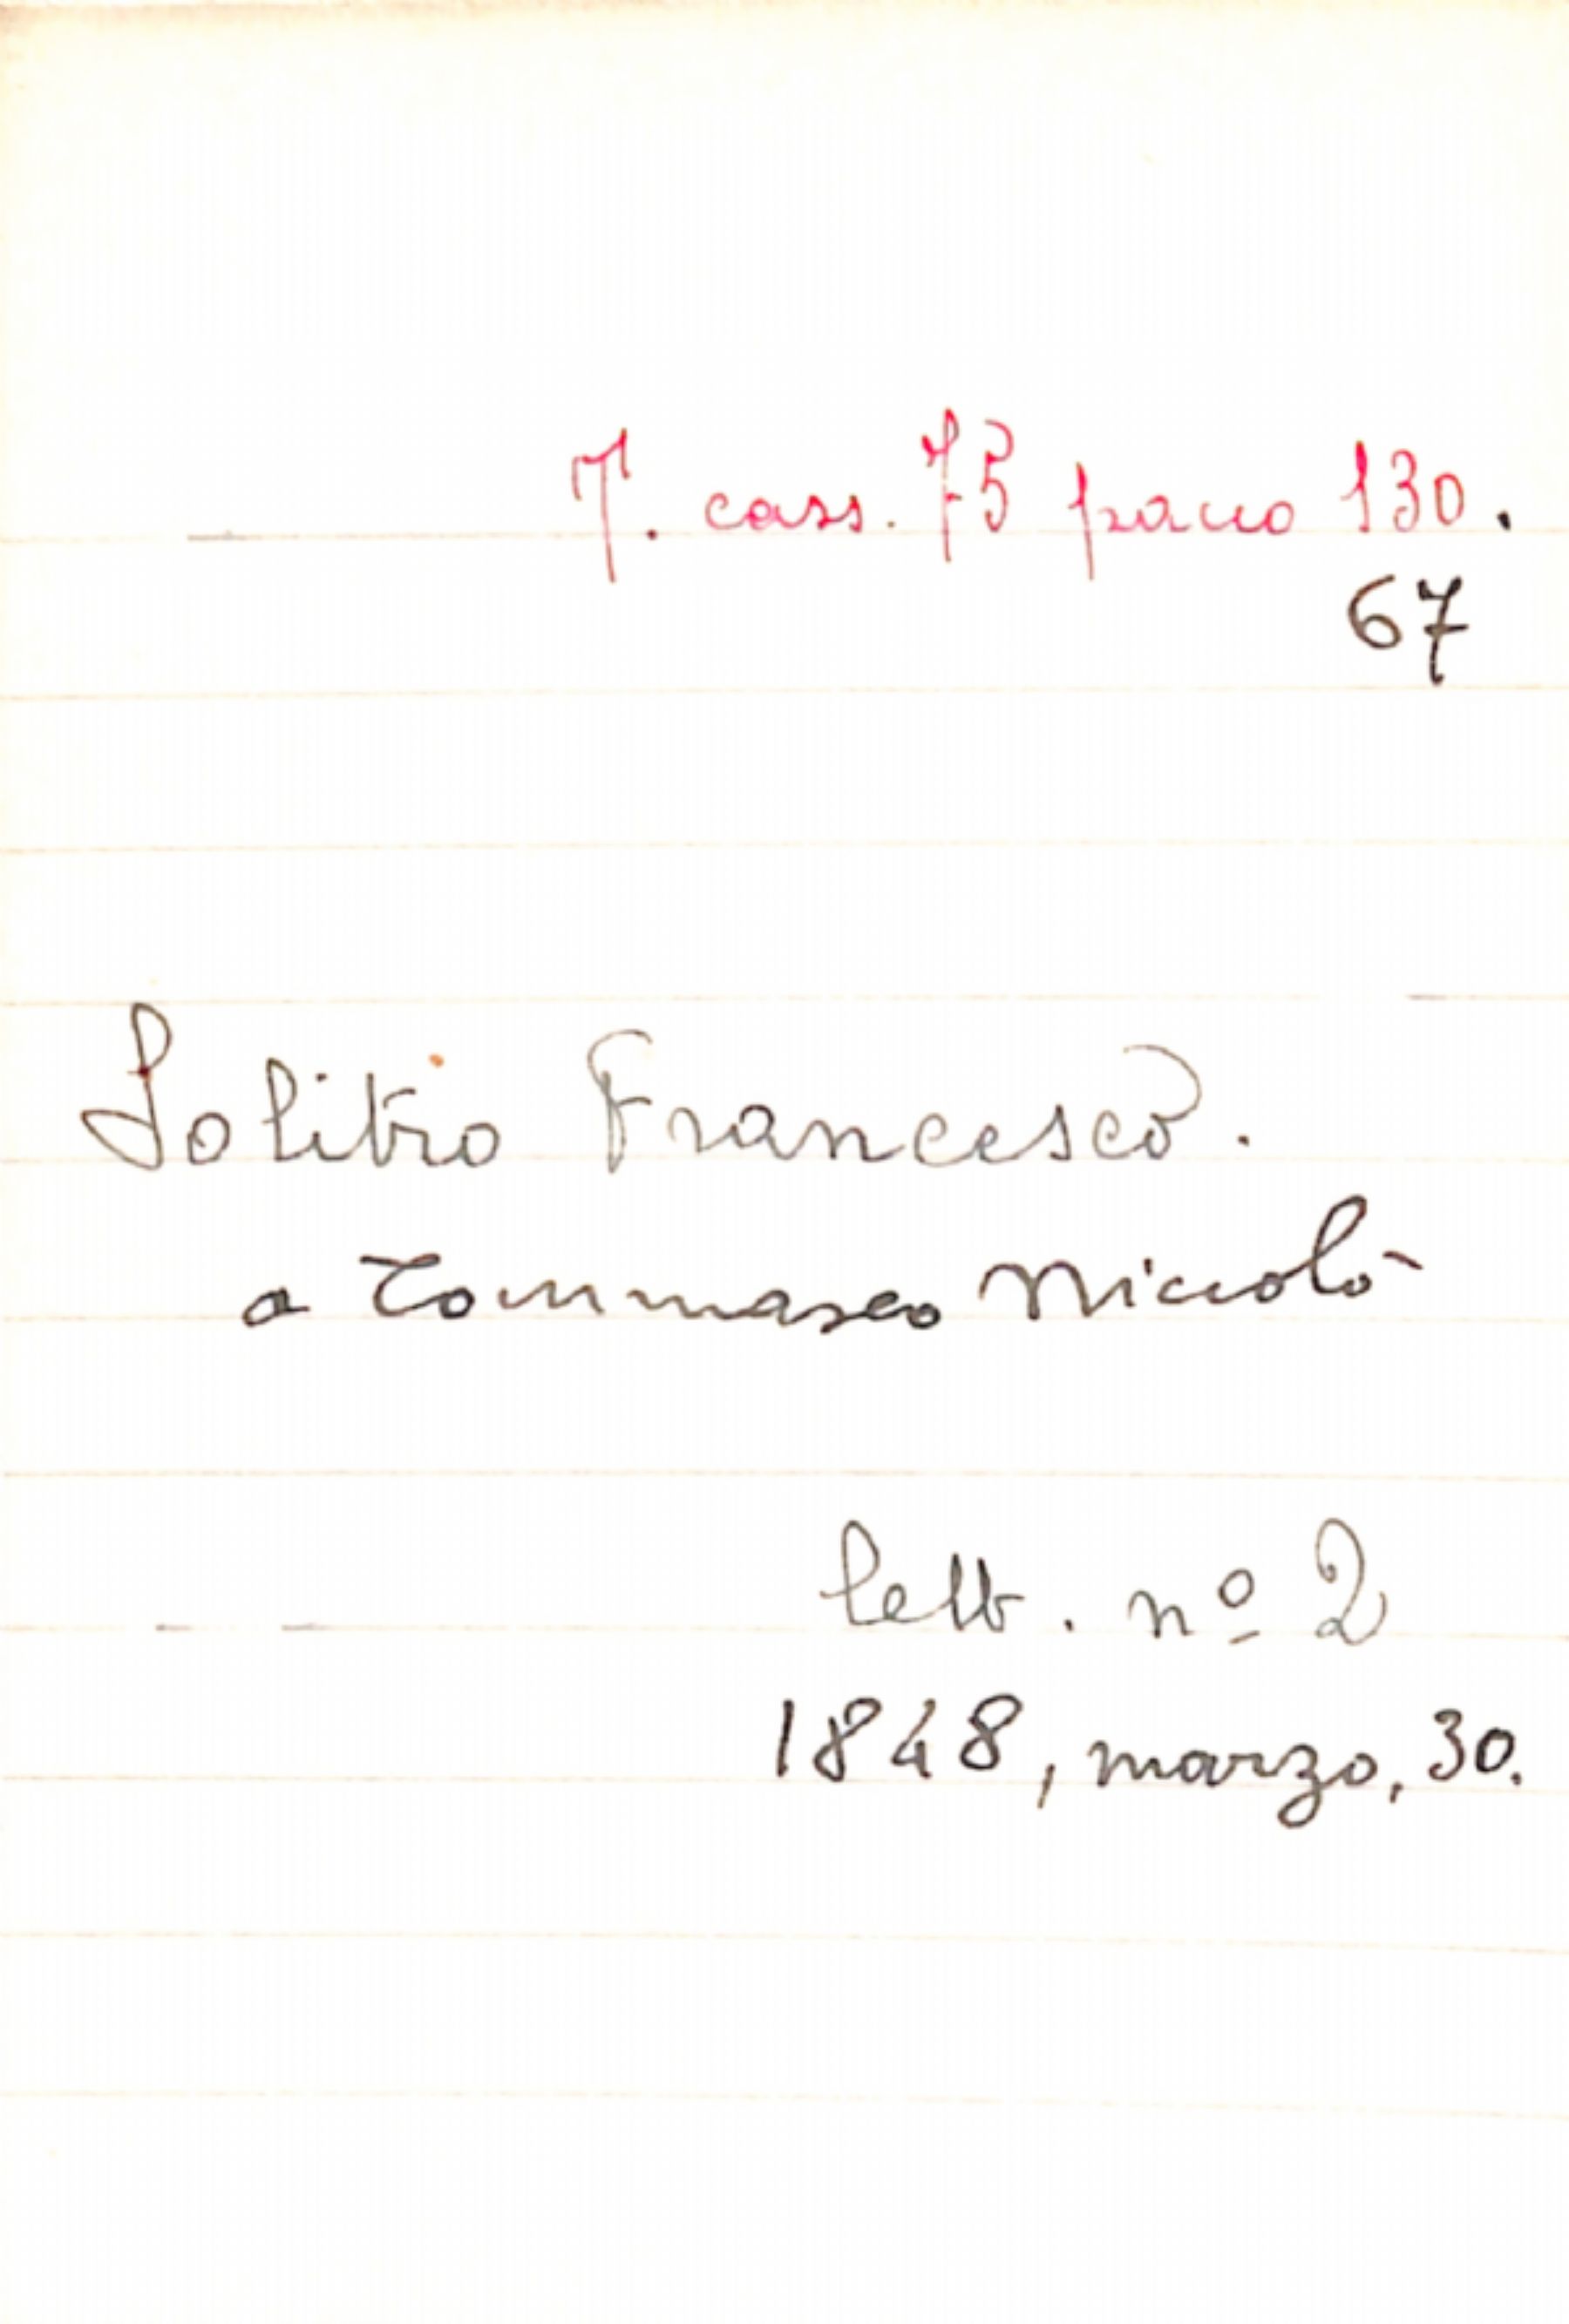 T. cass. 75 pacco 130.
67
Solitro Francesco.
a Tommaseo Niccolò
lett. nº 2
1848, marzo, 30.